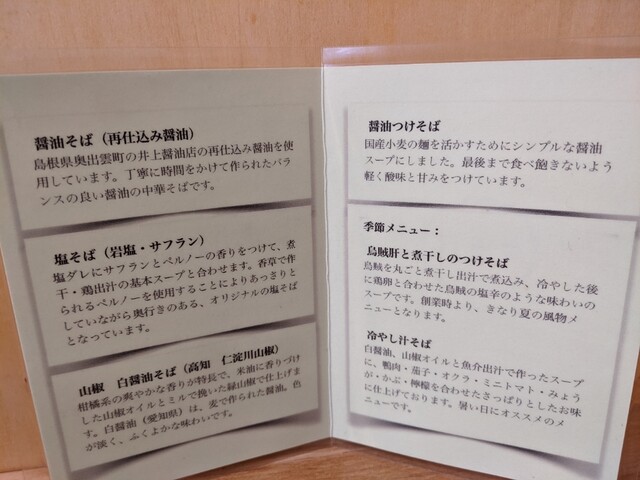 醤油そば（再仕込み醤油）
島根県奥出雲町の井上醤油店の再仕込み醤油を使
用しています。丁寧に時間をかけて作られたバラ
ンスの良い醤油の中華そばです。
塩そば（岩塩・サフラン）
塩ダレにサフランとペルノーの香りをつけて、煮
干・鶏出汁の基本スープと合わせます。香草で作
られるペルノーを使用することによりあっさりと
していながら奥行きのある、オリジナルの塩そば
となっています。
山椒　白醤油そば（高知　仁淀川山椒）
柑橘系の爽やかな香りが特長で、米油に香りづけ
した山椒オイルとミルで挽いた緑山椒で仕上げま
す。白醤油（愛知県）は、麦で作られた醤油。色
が淡く、ふくよかな味わいです。
醤油つけそば
国産小麦の麺を活かすためにシンプルな醤油
スープにしました。最後まで食べ飽きないよう
軽く酸味と甘みをつけています。
季節メニュー：
烏賊肝と煮干しのつけそば
烏賊を丸ごと煮干し出汁で煮込み、冷やした後
に鶏卵と合わせた烏賊の塩辛のような味わいの
スープです。創業時より、きなり夏の風物メ
ニューとなります。
冷やし汁そば
白醤油、山椒オイルと魚介出汁で作ったスープ
に、鴨肉・茄子・オクラ・ミニトマト・みょう
が・かぶ・檸檬を合わせたさっぱりとしたお味
に仕上げております。暑い日にオススメのメ
ニューです。